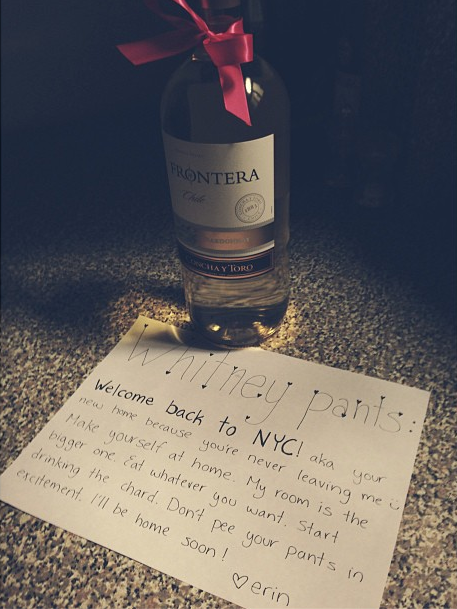 FRONTERA
Chile
CONCHA Y TORO
Whitney pants:
Welcome back to NYC! aka your
new home because you're never leaving me
Make yourself at home. My room is the
bigger one. Eat whatever you want. Start
drinking the chard. Don't pee your pants in
excitement. I'll be home soon!
♡erin